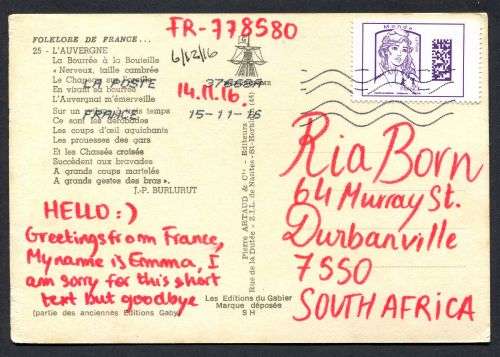 FR-778580
FOLKLORE DE FRANCE...
25 - L'AUVERGNE
La Bourrée à la Bouteille
« Nerveux, taille cambrée
Le Chanteur sur
En visant sa bourrée
L'Auvergnat m'émerveille
Sur un temps
Ce sont les dérobades
Les coups d'œil aguichants
Les prouesses des gars
Et les Chassés croisés
Succèdent aux bravades
A grands coups martelés
A grands gestes des bras ».
J.-P. BURLURUT
6/12/16
LA POSTE
37668A
14.11.16.
FRANCE
15-11-16
Monde
HELLO:)
Greetings from France,
My name is Emma, I
am sorry for this short
text but goodbye
Les Editions du Gabier
Marque déposée
(partie des anciennes Editions Gaby)
Pierre ARTAUD & Cie - Editeurs
Rue de la Dutée - Z.I.L. de Nantes-St-Herblain (44)
Ria Born
64 Murray St.
Durbanville
7550
SOUTH AFRICA